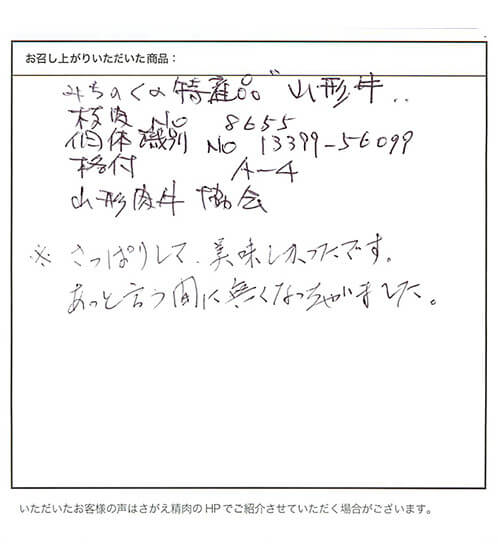 お召し上がりいただいた商品：
みちのくの特産品"山形牛"
枝肉 No 8655
個体識別 No 13399-56099
格付 A-4
山形肉牛協会
※ さっぱりして、美味しかったです。
あっと言う間に無くなっちゃいました。
いただいたお客様の声はさがえ精肉のHPでご紹介させていただく場合がございます。